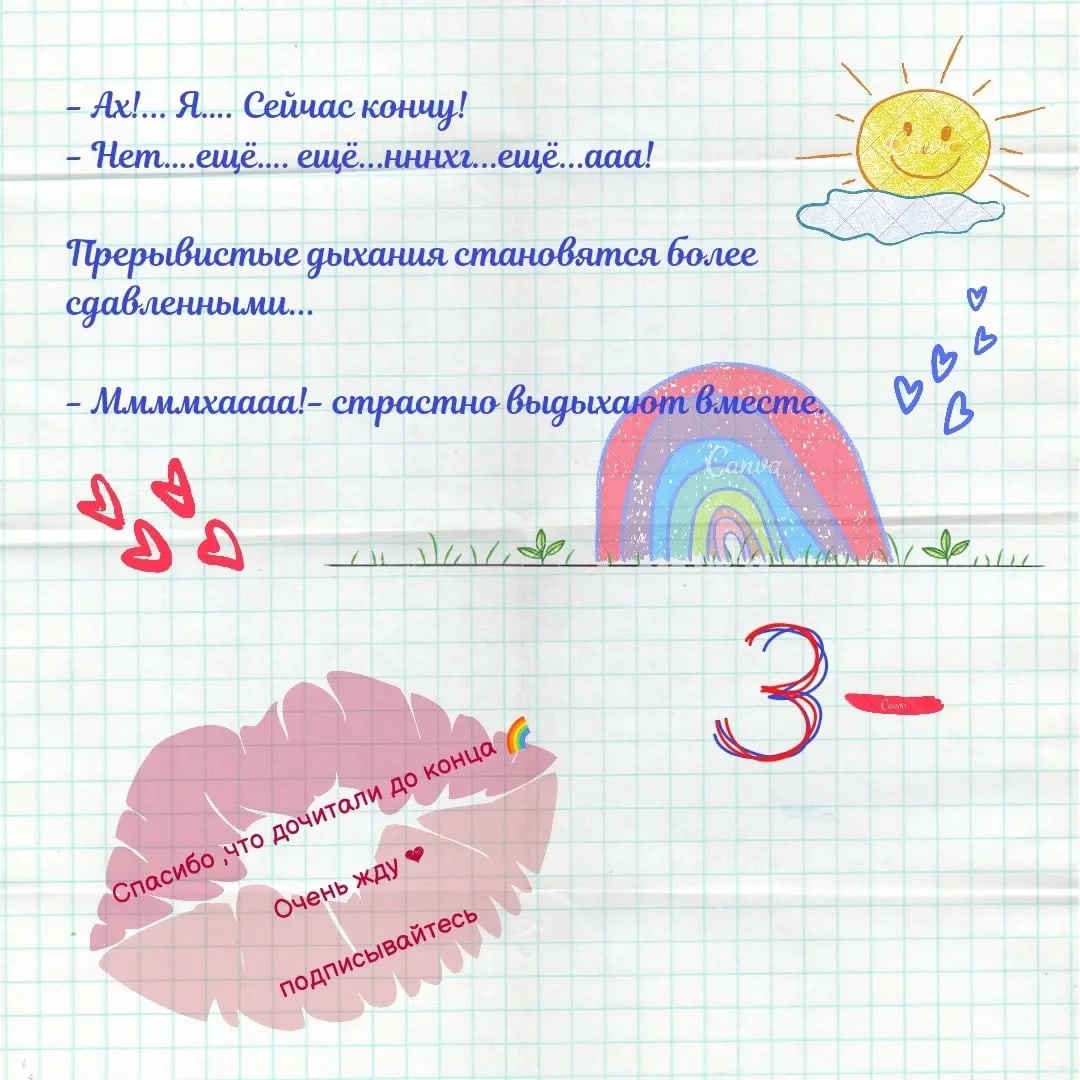 – Ах!... Я.... Сейчас кончу!
– Нет....ещё.... ещё...нннхг...ещё...ааа!
Прерывистые дыхания становятся более
сдавленными...
– Ммммхаааа!– страстно выдыхают вместе.
Canva
Canva
3-
Canva
Спасибо ,что дочитали до конца 🌈
Очень жду ❤
подписывайтесь